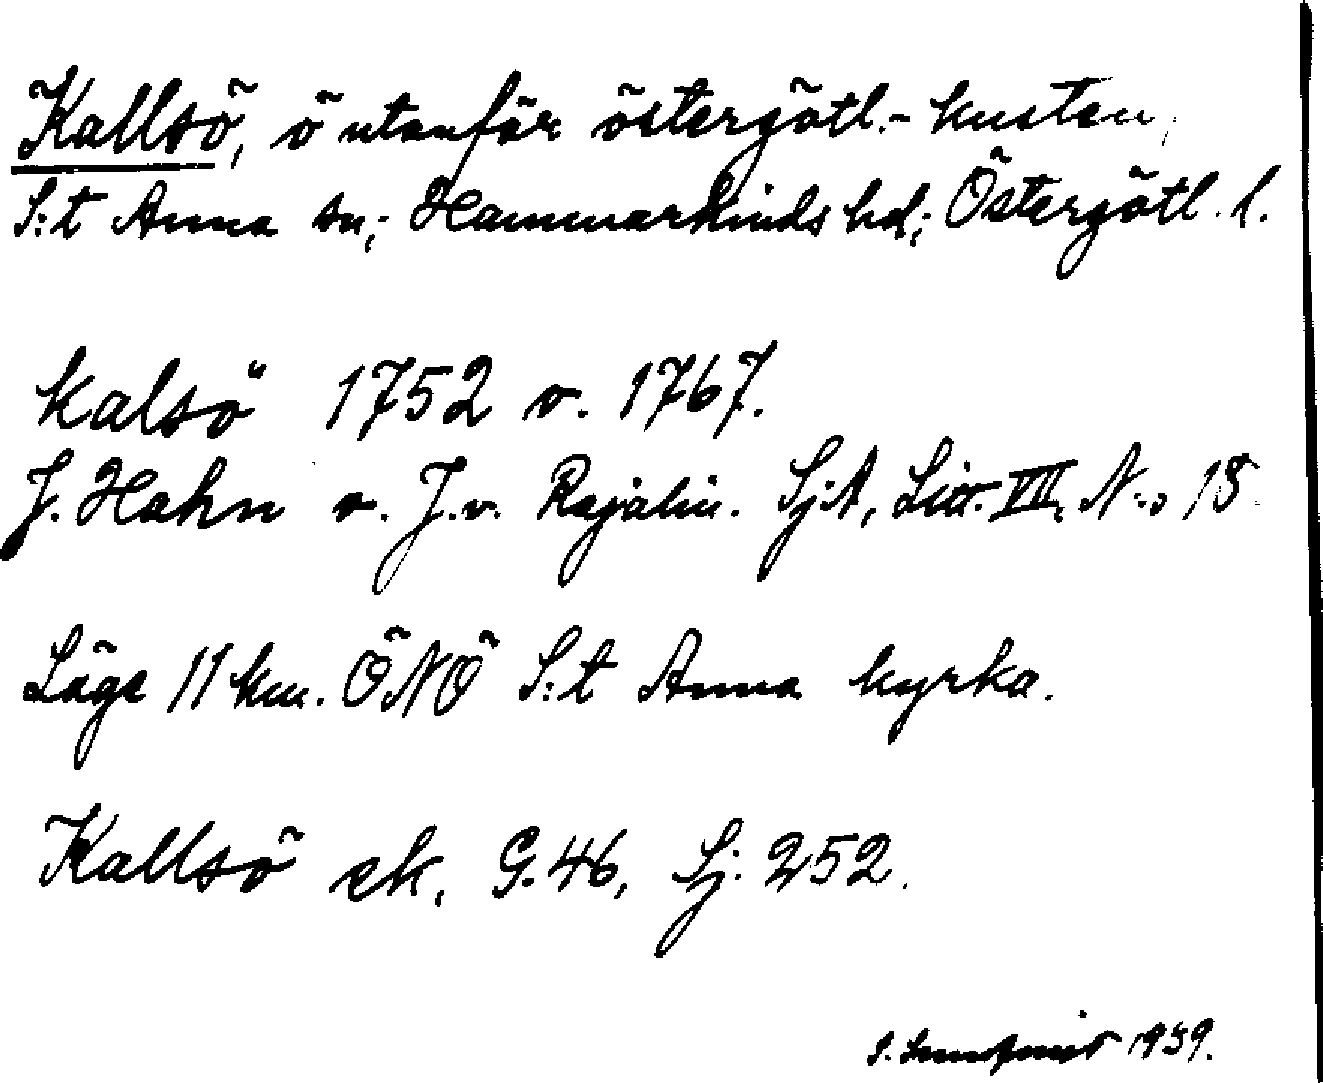 Kallsö, ö utanför östergötl.-kusten,
S:t Anna sn; Hammarkinds hd; Östergötl. l.
Kalsö 1752 o. 1767.
J. Hahn o. J.v. Rajalin. Sj.A, Litt. VIII, N:o 18
Läge 11 km. ÖNÖ S:t Anna kyrka.
Kallsö ek. G. 46, Sj. 252.
S. 1939.